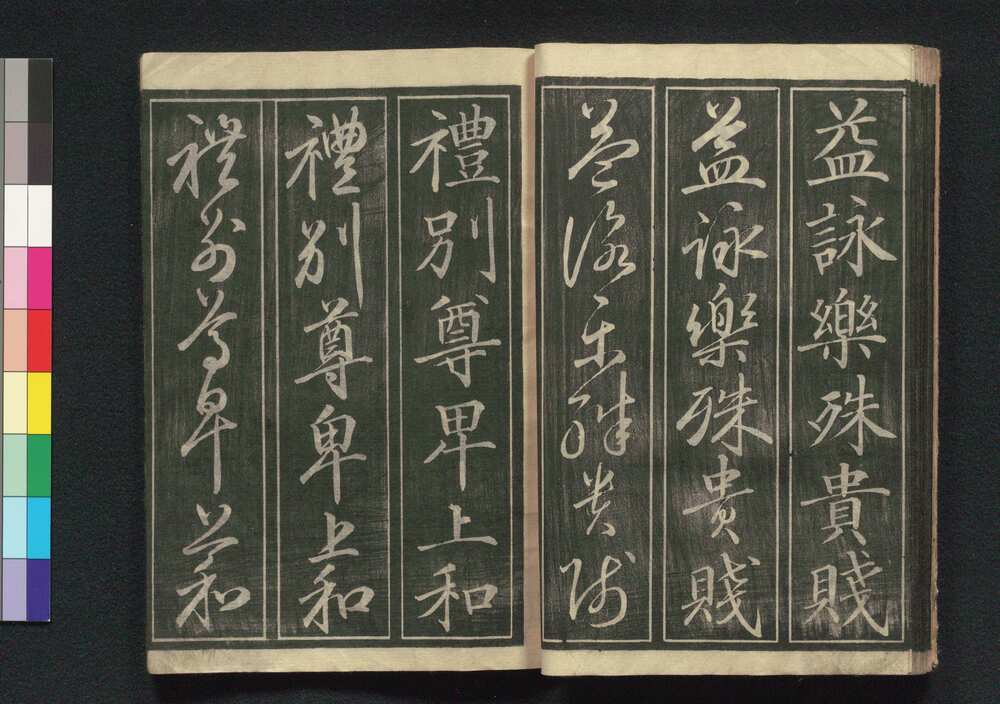 益詠樂殊貴賤
益詠樂殊貴賤
益詠樂殊貴賤
禮別尊卑上和
禮別尊卑上和
禮別尊卑上和